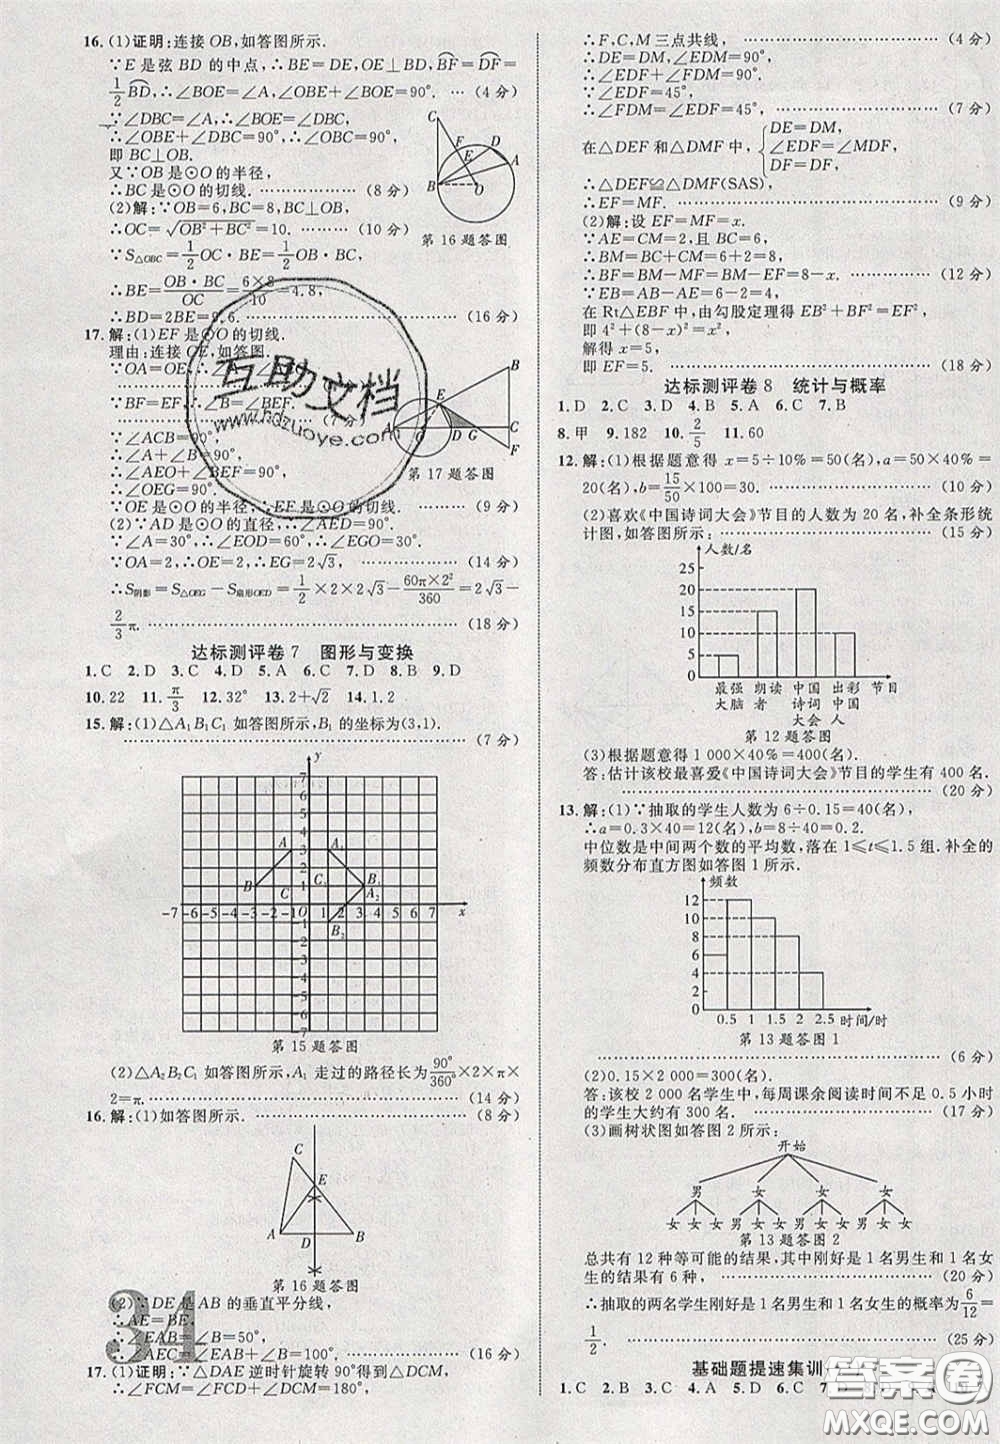 16. (1)证明:连接 OB,如答图所示.
∵E 是弦 BD 的中点,∴BE=DE,OE⊥BD,BF=DF=
1/2 BD,∴∠BOE=∠A,∠OBE+∠BOE=90°. … (4 分)
∵∠DBC=∠A,∴∠BOE=∠DBC,
∴∠OBE+∠DBC=90°,∴∠OBC=90°,
即 BC⊥OB.
又∵OB 是⊙O 的半径,
∴BC 是⊙O 的切线. ……………… (8 分)
(2)解:∵OB=6,BC=8,BC⊥OB,
∴OC=√(OB²+BC²)=10. ……… (10 分)
∵S△OBC=1/2 OC·BE=1/2 OB·BC,
∴BE=OB·BC/OC=6×8/10=4.8,
∴BD=2BE=9.6. ……………… (16 分)
C F D E A B O
第 16 题答图
17. 解:(1)EF 是⊙O 的切线.
理由:连接 OE,如答图.
∵OA=OE,∴∠A=
∵BF=EF,∴∠B=∠BEF.
(7 分)
∴∠A+∠B=90°,
∴∠AEO+∠BEF=90°,
∴∠OEG=90°.
∵OE 是⊙O 的半径,∴EF 是⊙O 的切线. ……… (9 分)
B E A O D G C F
第 17 题答图
(2)∵AD 是⊙O 的直径,∴∠AED=90°.
∵∠A=30°,∴∠EOD=60°,∴∠EGO=30°.
∵OA=2,∴OE=2,∴EG=2√3, ……… (14 分)
∴S阴影=S△OEG−S扇形OED=1/2×2×2√3−60π×2²/360=2√3−
2/3 π. ……………… (18 分)
达标测评卷 7 图形与变换
1. C 2. D 3. C 4. D 5. A 6. C 7. D 8. B 9. D
10. 22 11. π/3 12. 32° 13. 2+√2 14. 1.2
15. 解:(1)△A₁B₁C₁ 如答图所示,B₁ 的坐标为(3,1).
……………… (7 分)
y
7
6
5
4
3
2
1
-7 -6 -5 -4 -3 -2 -1 O 1 2 3 4 5 6 7 x
-1
-2
-3
-4
-5
-6
-7
A A₁ B C C₁ B₁ A₂ B₂
第 15 题答图
(2)△A₂B₂C₁ 如答图所示,A₁ 走过的路径长为90°/360°×2×π×
2=π. ……………… (14 分)
16. 解:(1)如答图所示. ……………… (8 分)
C E A D B
第 16 题答图
(2)∵DE 是 AB 的垂直平分线,
∴AE=BE,
∴∠EAB=∠B=50°,
∴∠AEC=∠EAB+∠B=100°. ……… (16 分)
17. (1)证明:∵△DAE 逆时针旋转 90°得到△DCM,
∴∠FCM=∠FCD+∠DCM=180°,
34
∴F,C,M 三点共线, ……………… (4 分)
∴DE=DM,∠EDM=90°,
∴∠EDF+∠FDM=90°.
∵∠EDF=45°,
∴∠FDM=∠EDF=45°, ……………… (7 分)
在△DEF 和△DMF 中,
DE=DM,
∠EDF=∠MDF,
DF=DF,
∴△DEF≌△DMF(SAS),
∴EF=MF. ……………… (9 分)
(2)解:设 EF=MF=x.
∵AE=CM=2,且 BC=6,
∴BM=BC+CM=6+2=8,
∴BF=BM−MF=BM−EF=8−x. ……… (12 分)
∵EB=AB−AE=6−2=4,
在 Rt△EBF 中,由勾股定理得 EB²+BF²=EF²,
即 4²+(8−x)²=x²,
解得 x=5,
即 EF=5. ……………… (18 分)
达标测评卷 8 统计与概率
1. D 2. C 3. D 4. B 5. A 6. C 7. B
8. 甲 9. 182 10. 2/5 11. 60
12. 解:(1)根据题意得 x=5÷10%=50(名),a=50×40%=
20(名),b=15/50×100=30. ……………… (10 分)
(2)喜欢《中国诗词大会》节目的人数为 20 名,补全条形统
计图,如答图所示: ……………… (15 分)
人数/名
25
20
15
10
5
最强大脑 朗读者 中国诗词大会 出彩中国人 节目
第 12 题答图
(3)根据题意得 1 000×40%=400(名).
答:估计该校最喜爱《中国诗词大会》节目的学生有 400 名.
……………… (20 分)
13. 解:(1)∵抽取的学生人数为 6÷0.15=40(名),
∴a=0.3×40=12(名),b=8÷40=0.2.
中位数是中间两个数的平均数,落在 1≤t≤1.5 组.补全的
频数分布直方图如答图 1 所示.
频数
12
10
8
6
4
2
0.5 1 1.5 2 2.5 时间/时
第 13 题答图 1
……………… (6 分)
(2)0.15×2 000=300(名).
答:该校 2 000 名学生中,每周课余阅读时间不足 0.5 小时
的学生大约有 300 名. ……………… (17 分)
(3)画树状图如答图 2 所示:
开始
男 女 女 女
女 女 女 男 女 女 男 女 女 男 女 女
第 13 题答图 2
总共有 12 种等可能的结果,其中刚好是 1 名男生和 1 名女
生的结果有 6 种, ……………… (20 分)
∴抽取的两名学生刚好是 1 名男生和 1 名女生的概率为6/12=
1/2. ……………… (25 分)
基础题提速集训
1. C 2. C 3. C 4. A 5. D 6. C 7.
互助文档
www.hdzuoye.com
答案卷
MXQE.COM